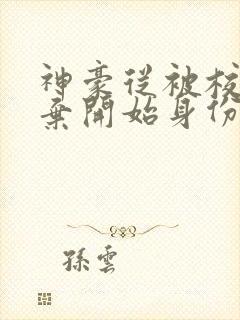 神豪從被校
棄開始身份
孫雲